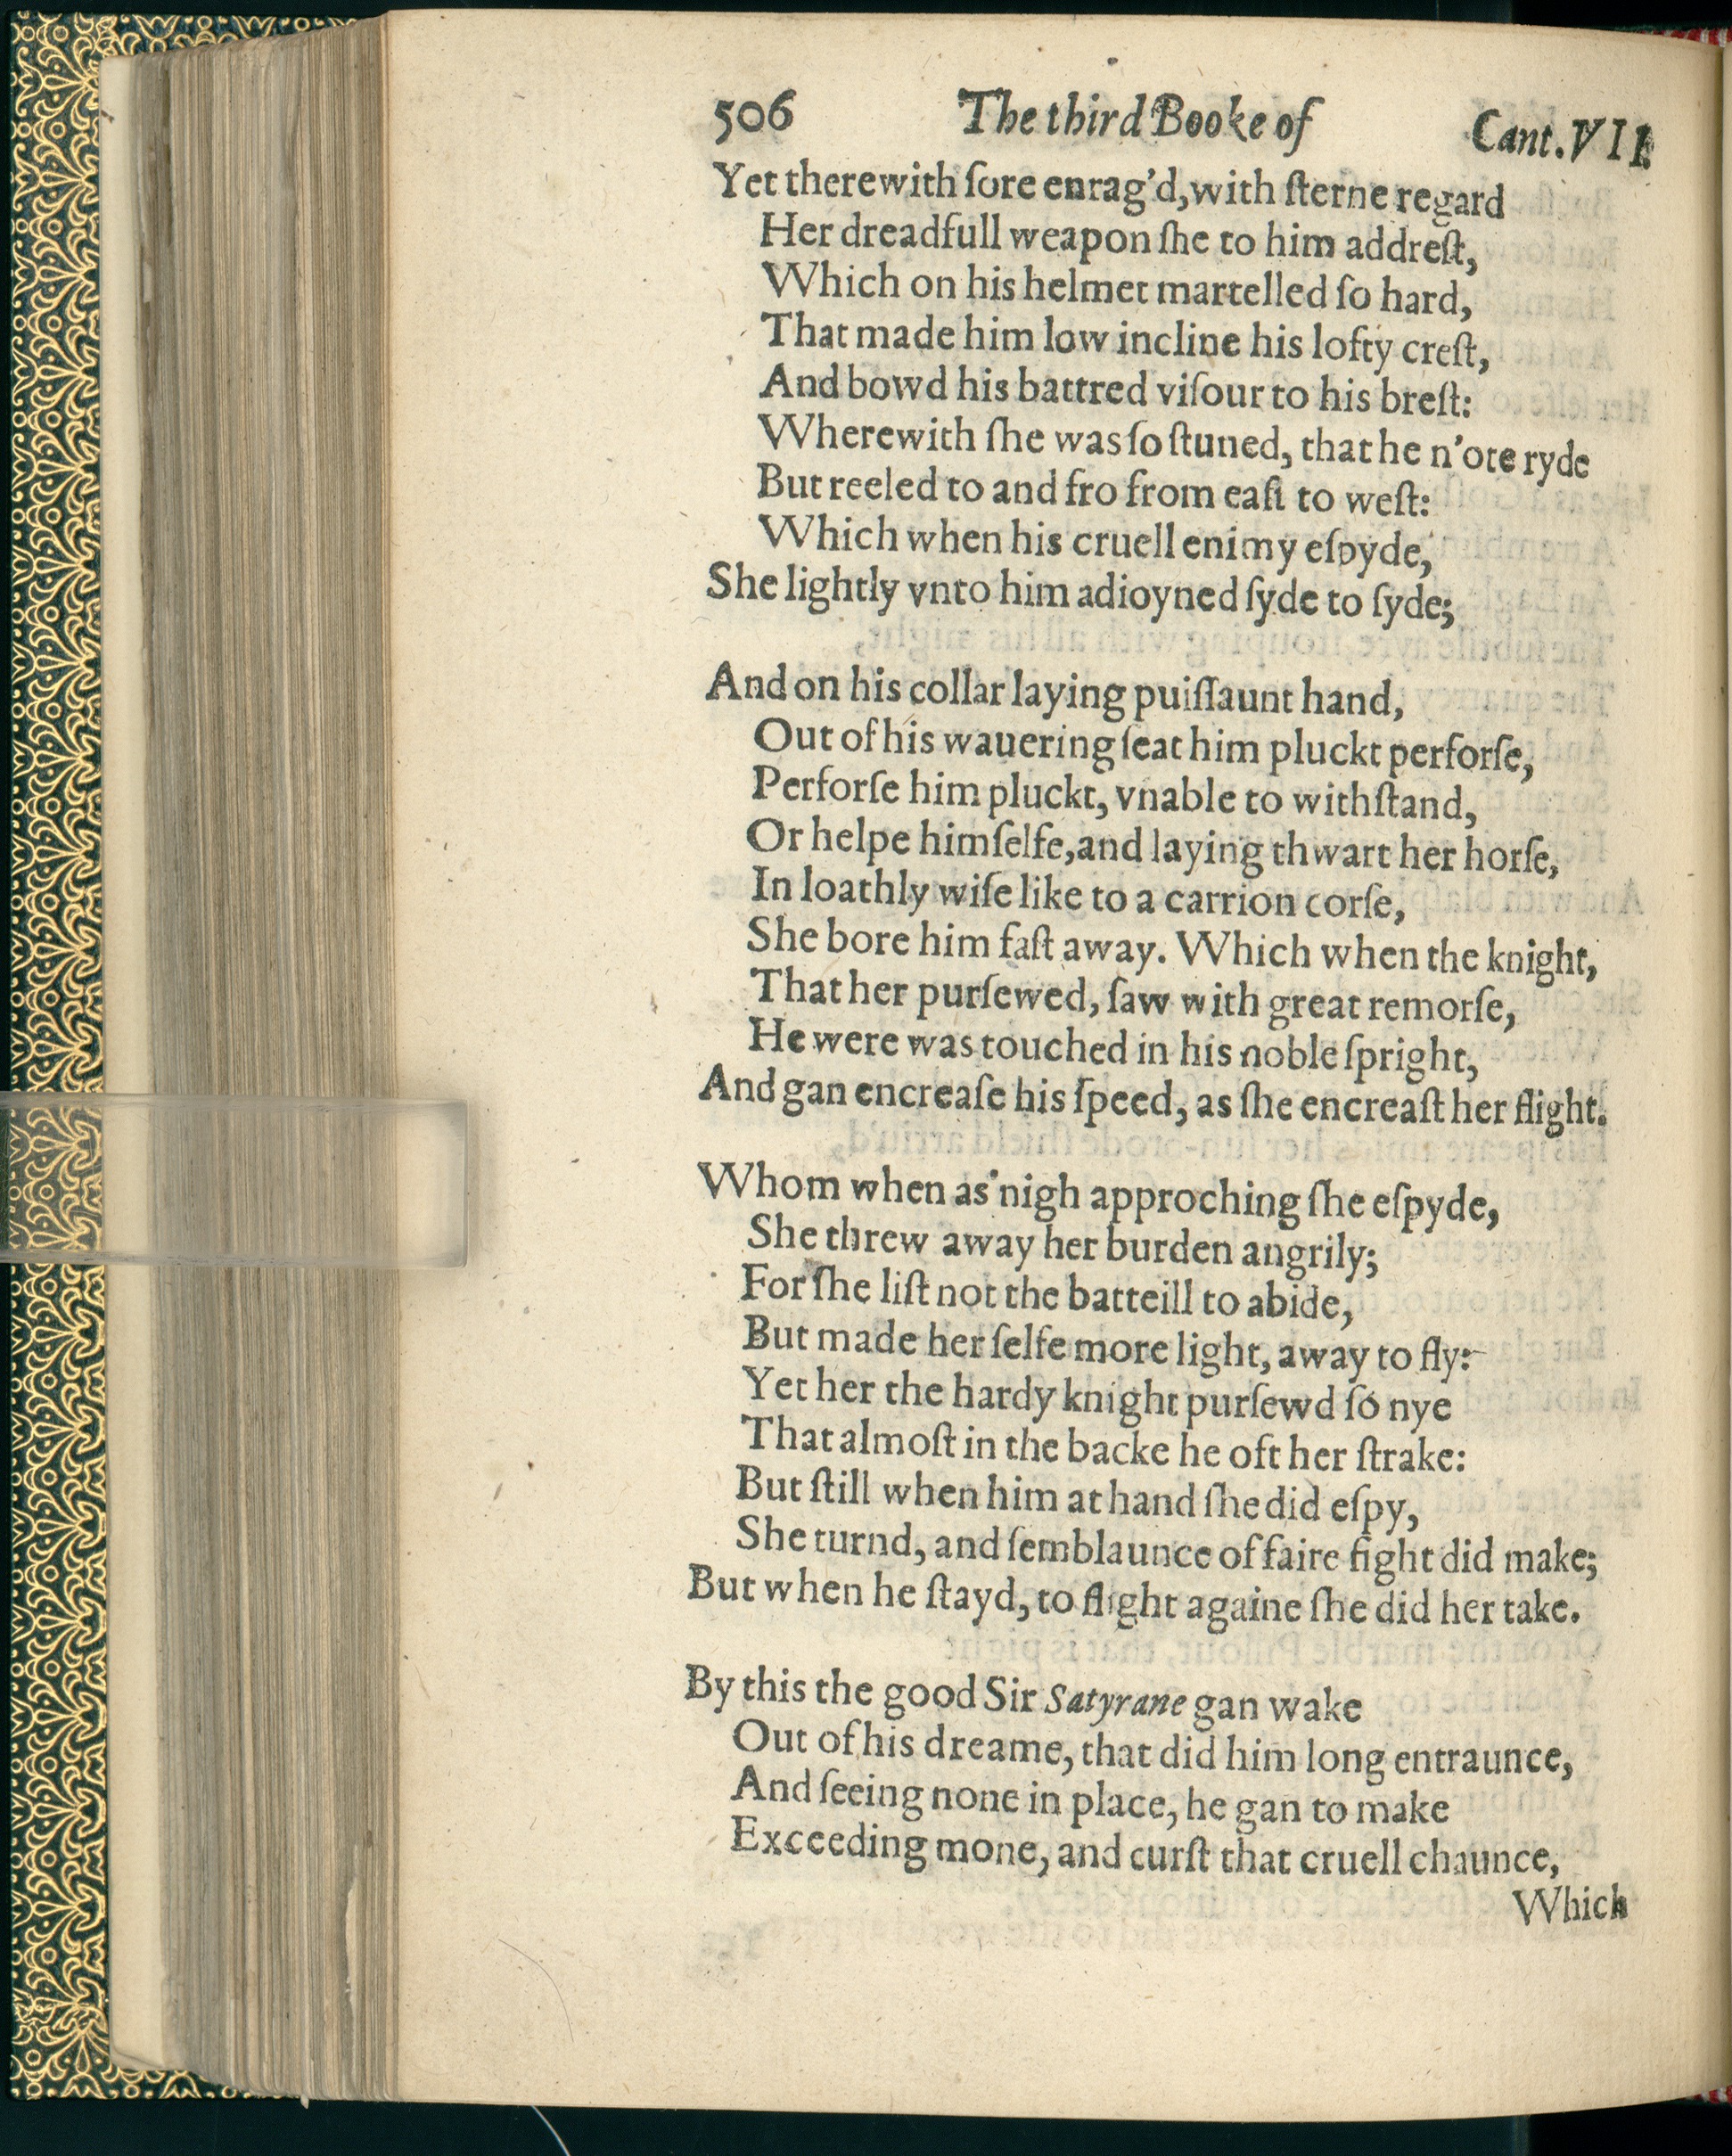 506 The third Booke of Cant. VII.
Yet therewith ſore enrag'd, with ſterne regard
Her dreadfull weapon ſhe to him addreſt,
Which on his helmet martelled ſo hard,
That made him low incline his lofty creſt,
And bowd his battred viſour to his breſt:
Wherewith ſhe was ſo ſtuned, that he n'ote ryde
But reeled to and fro from eaſt to weſt:
Which when his cruell enimy eſpyde,
She lightly vnto him adioyned ſyde to ſyde;
And on his collar laying puiſſaunt hand,
Out of his wauering ſeat him pluckt perforſe,
Perforſe him pluckt, vnable to withſtand,
Or helpe himſelfe, and laying thwart her horſe,
In loathly wiſe like to a carrion corſe,
She bore him faſt away. Which when the knight,
That her purſewed, ſaw with great remorſe,
He were was touched in his noble ſpright,
And gan encreaſe his ſpeed, as ſhe encreaſt her flight.
Whom when as nigh approching ſhe eſpyde,
She threw away her burden angrily;
For ſhe liſt not the batteill to abide,
But made her ſelfe more light, away to fly:
Yet her the hardy knight purſewd ſo nye
That almoſt in the backe he oft her ſtrake:
But ſtill when him at hand ſhe did eſpy,
She turnd, and ſemblaunce of faire fight did make;
But when he ſtayd, to flight againe ſhe did her take.
By this the good Sir Satyrane gan wake
Out of his dreame, that did him long entraunce,
And ſeeing none in place, he gan to make
Exceeding mone, and curſt that cruell chaunce,
Which